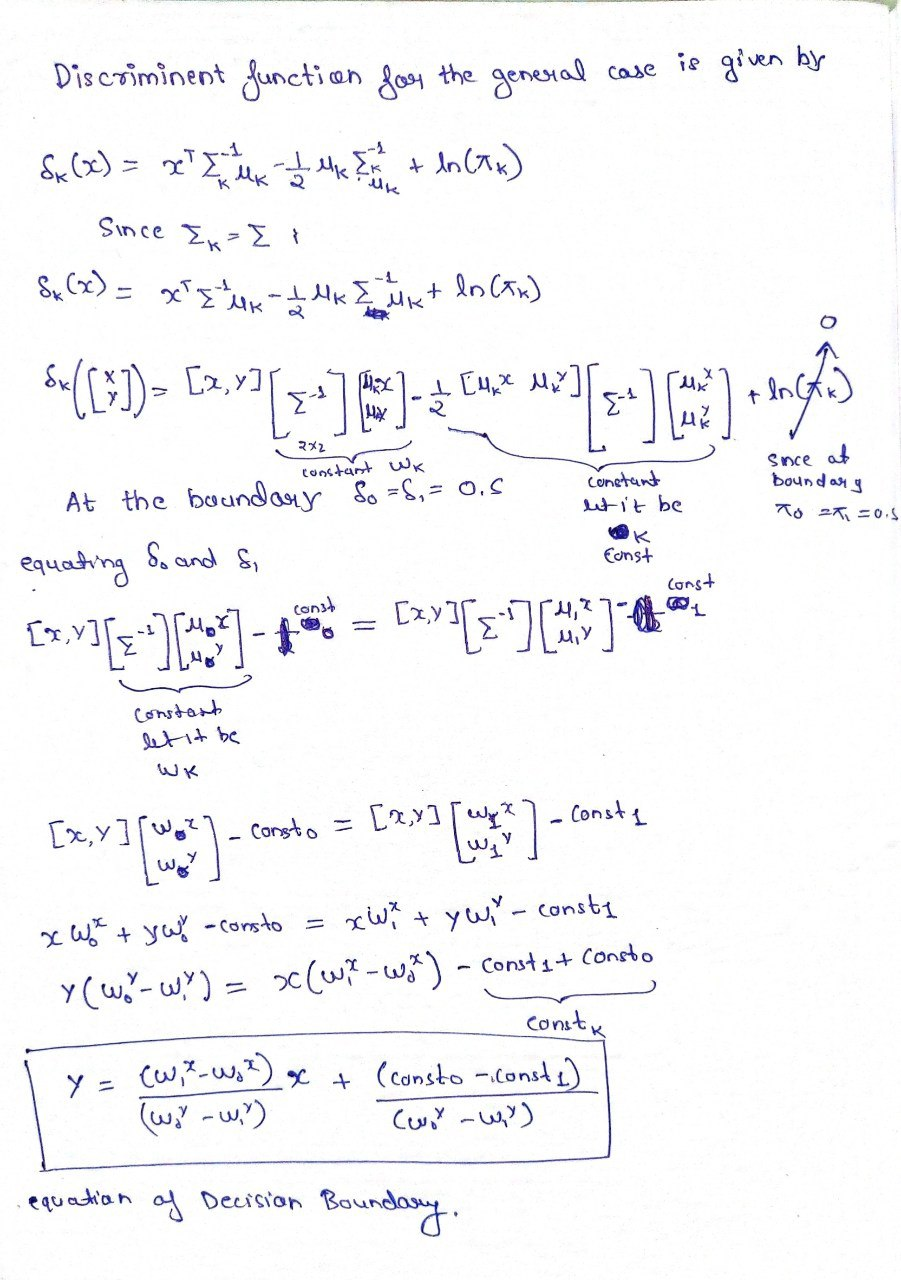 Discriminent function for the general case is given by
δₖ(x) = xᵀ Σₖ⁻¹ μₖ - 1/2 μₖ Σₖ⁻¹ μₖ + ln(πₖ)
Since Σₖ = Σ ;
δₖ(x) = xᵀ Σ⁻¹ μₖ - 1/2 μₖ Σ⁻¹ μₖ + ln(πₖ)
0
δₖ([x y]) = [x, y] [Σ⁻¹] [μₖˣ μₖʸ] - 1/2 [μₖˣ μₖʸ] [Σ⁻¹] [μₖˣ μₖʸ] + ln(πₖ)
2x2
constant Wₖ
constant
let it be
Constₖ
Since at
boundary
π₀ = π₁ = 0.5
At the boundary δ₀ = δ₁ = 0.5
equating δ₀ and δ₁
[x, y] [Σ⁻¹] [μ₀ˣ μ₀ʸ] - const₀ = [x, y] [Σ⁻¹] [μ₁ˣ μ₁ʸ] - const₁
constant
let it be
Wₖ
[x, y] [w₀ˣ w₀ʸ] - const₀ = [x, y] [w₁ˣ w₁ʸ] - const1
x w₀ˣ + y w₀ʸ - const₀ = x w₁ˣ + y w₁ʸ - const1
y(w₀ʸ - w₁ʸ) = x(w₁ˣ - w₀ˣ) - const1 + const₀
constₖ
y = (w₁ˣ - w₀ˣ)/(w₀ʸ - w₁ʸ) x + (const₀ - const1)/(w₀ʸ - w₁ʸ)
equation of Decision Boundary.